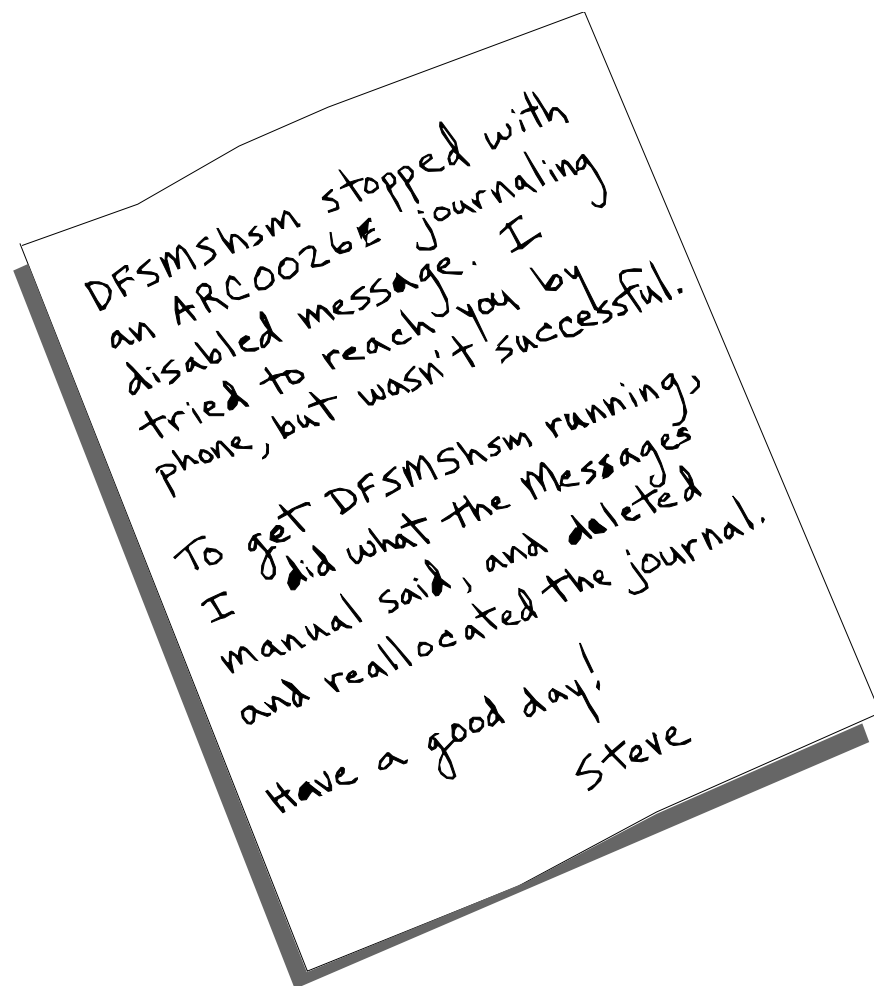 DFSMShsm stopped with
an ARC0026E journaling
disabled message. I
tried to reach you by
phone, but wasn't successful.
To get DFSMShsm running,
I did what the Messages
manual said, and deleted
and reallocated the journal.
Have a good day!
Steve